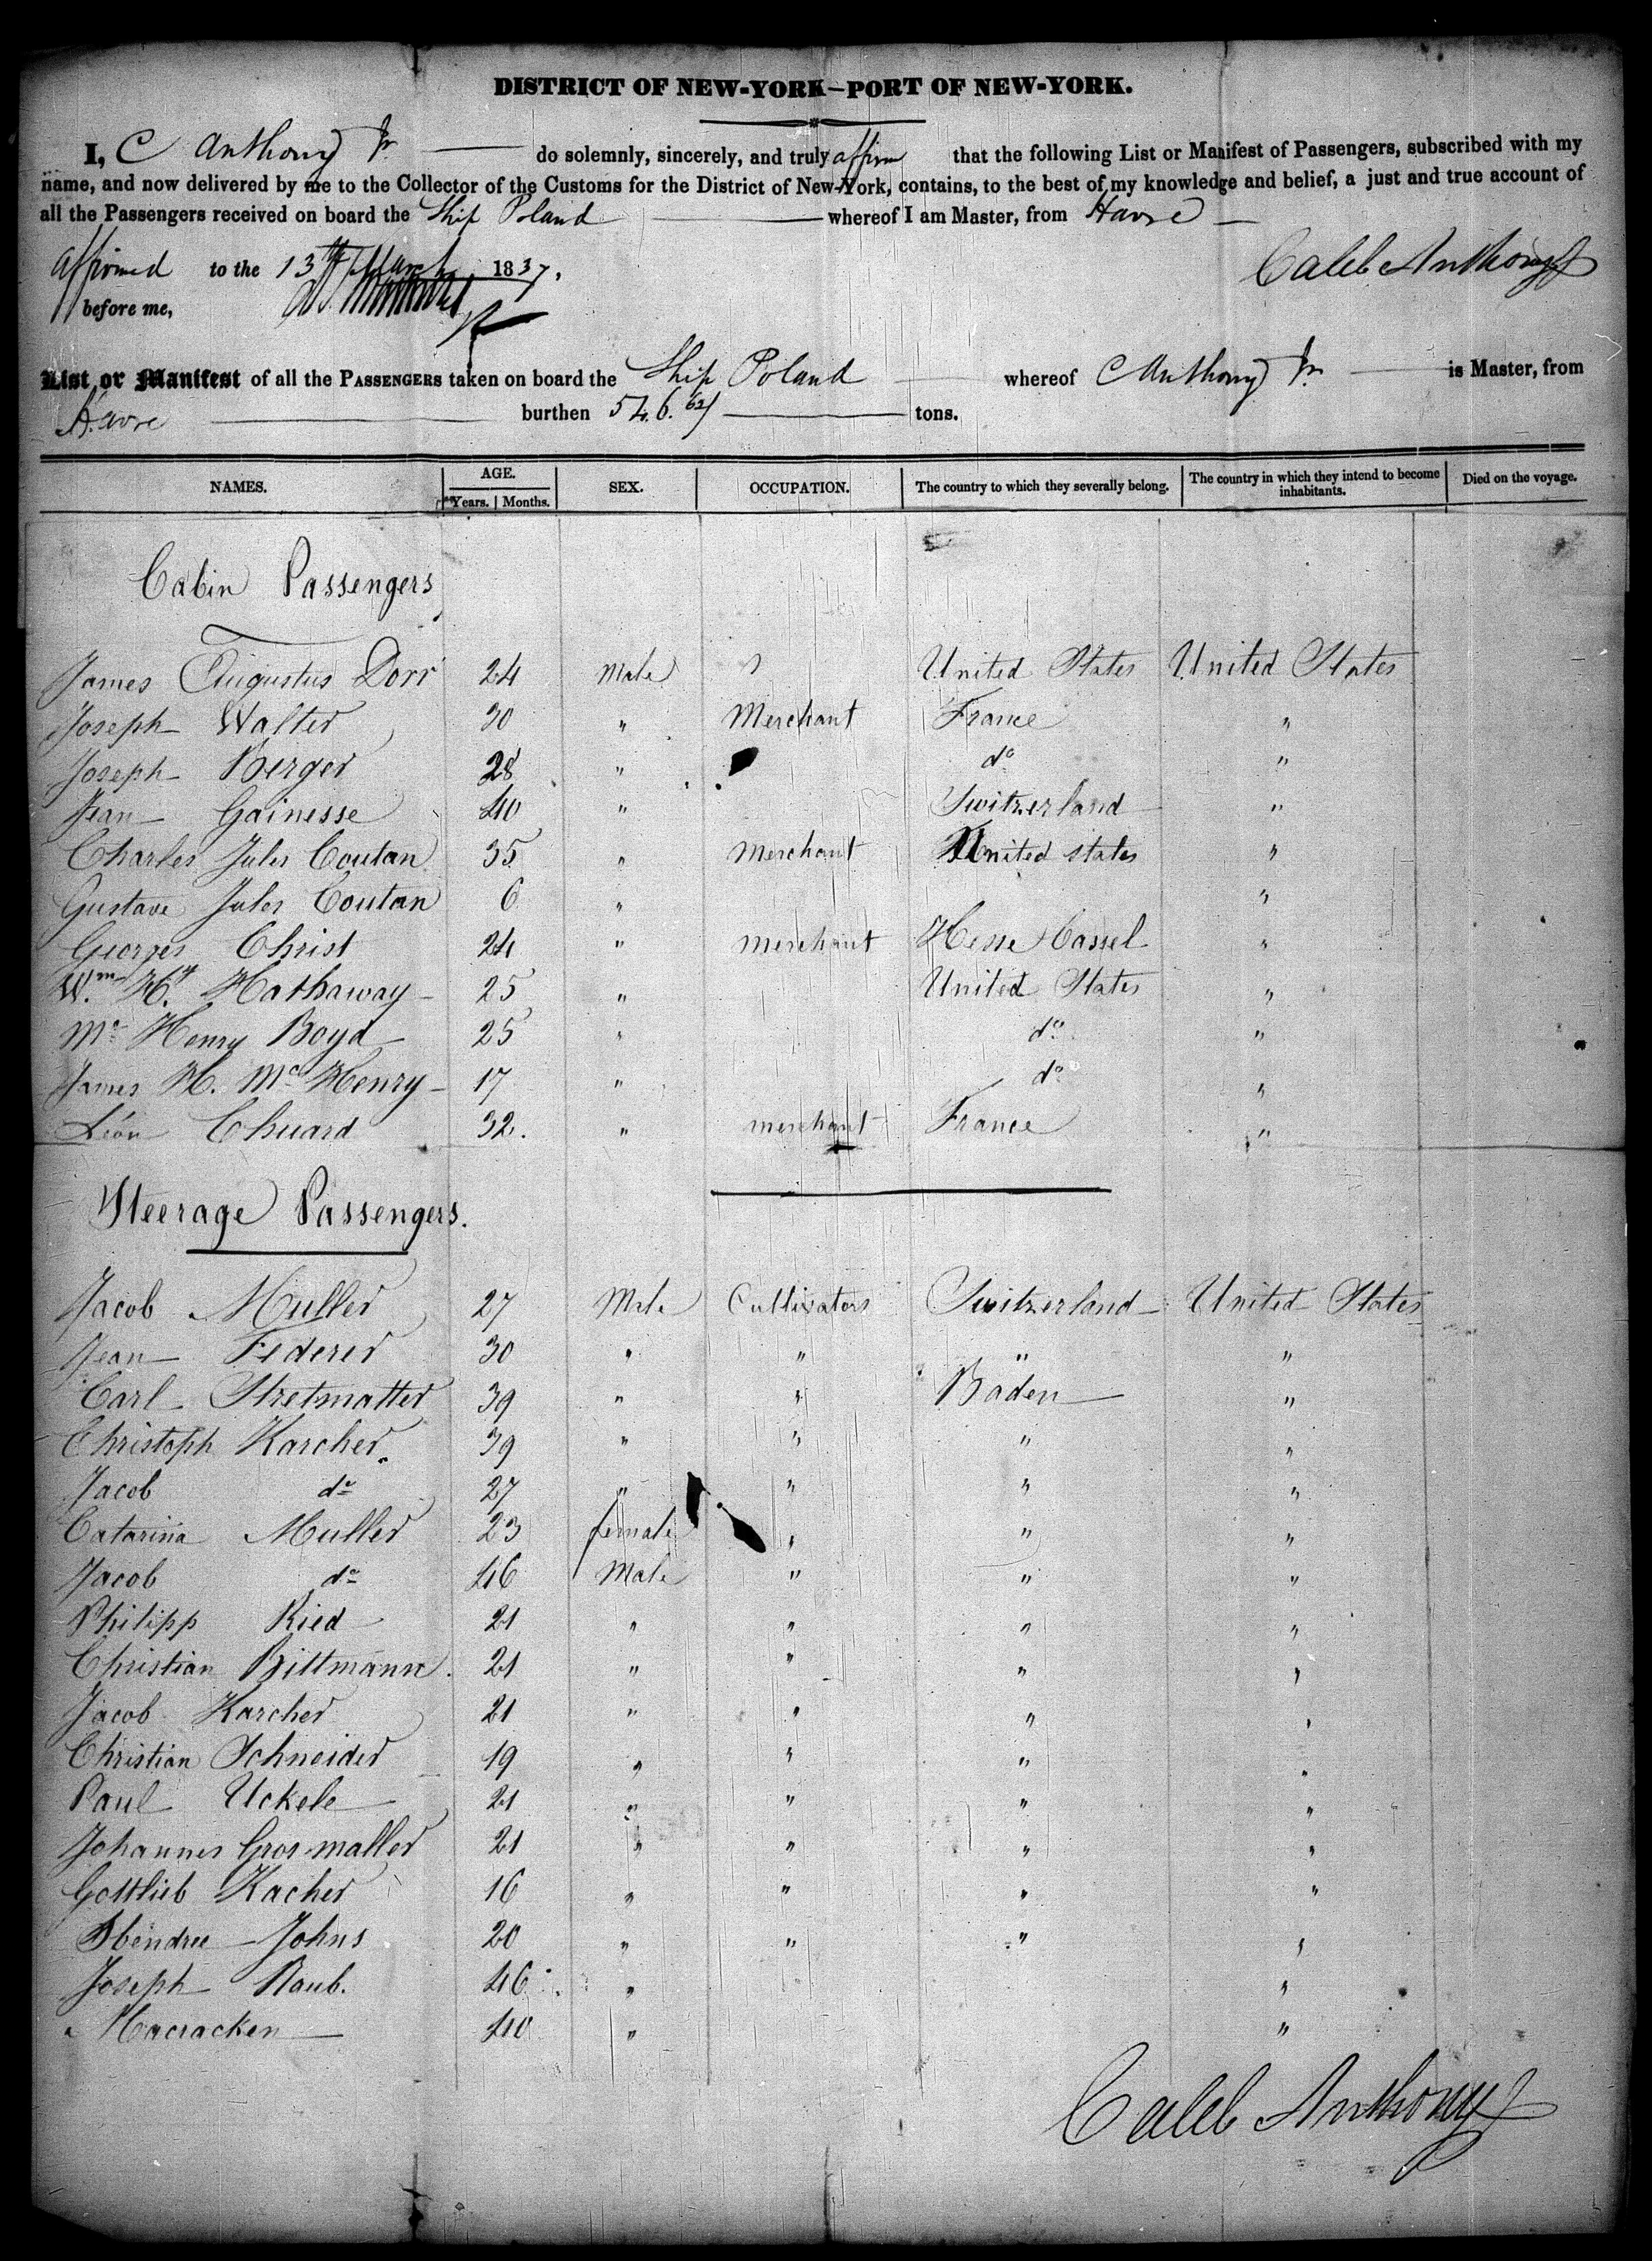 DISTRICT OF NEW-YORK—PORT OF NEW-YORK.
I, C Anthony Jr. do solemnly, sincerely, and truly affirm that the following List or Manifest of Passengers, subscribed with my
name, and now delivered by me to the Collector of the Customs for the District of New-York, contains, to the best of my knowledge and belief, a just and true account of
all the Passengers received on board the Ship Poland whereof I am Master, from Havre
Caleb Anthony Jr
Affirmed to the 13th March 1837.
before me,
List or Manifest of all the PASSENGERS taken on board the Ship Poland whereof C Anthony Jr. is Master, from
Havre burthen 546. tons.
NAMES. AGE. SEX. OCCUPATION. The country to which they severally belong. The country in which they intend to become inhabitants. Died on the voyage.
Years. Months.
Cabin Passengers
James Augustus Dorr 24 Male ? United States United States
Joseph Walter 30 " Merchant France "
Joseph Berger 28 " do "
Jean Gainesse 40 " Switzerland "
Charles Jules Coutan 35 " Merchant United States "
Gustave Jules Coutan 6 " "
Georges Christ 24 " merchant Hesse Cassel "
Wm. Hy. Hathaway 25 " United States "
Mr Henry Boyd 25 " do "
James H. Mc Henry 17 " do "
Léon Chuard 32. " merchant France "
Steerage Passengers.
Jacob Muller 27 Male Cultivators Switzerland United States
Jean Federer 30 " " " "
Carl Stretmatter 39 " " Baden "
Christoph Karcher 39 " " " "
Jacob do 27 " " " "
Catarina Muller 23 female " " "
Jacob do 46 Male " " "
Philipp Ried 21 " " " "
Christian Bittmann 21 " " " "
Jacob Karcher 21 " " " "
Christian Schneider 19 " " " "
Paul Uckele 21 " " " "
Johannes Grosmaller 21 " " " "
Gottlieb Kacher 16 " " " "
Johns 20 " " " "
Joseph Raub. 46 " "
Macracken 40 " "
Caleb Anthony Jr